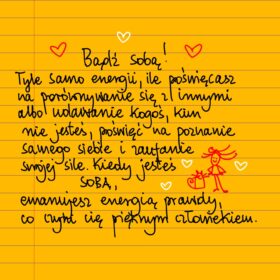 Bądź sobą!
Tyle samo energii, ile poświęcasz
na porównywanie się z innymi
albo udawanie kogoś, kim
nie jesteś, poświęć na poznanie
samego siebie i zaufanie
swojej sile. Kiedy jesteś
SOBĄ,
emanujesz energią prawdy,
co czyni cię pięknym człowiekiem.